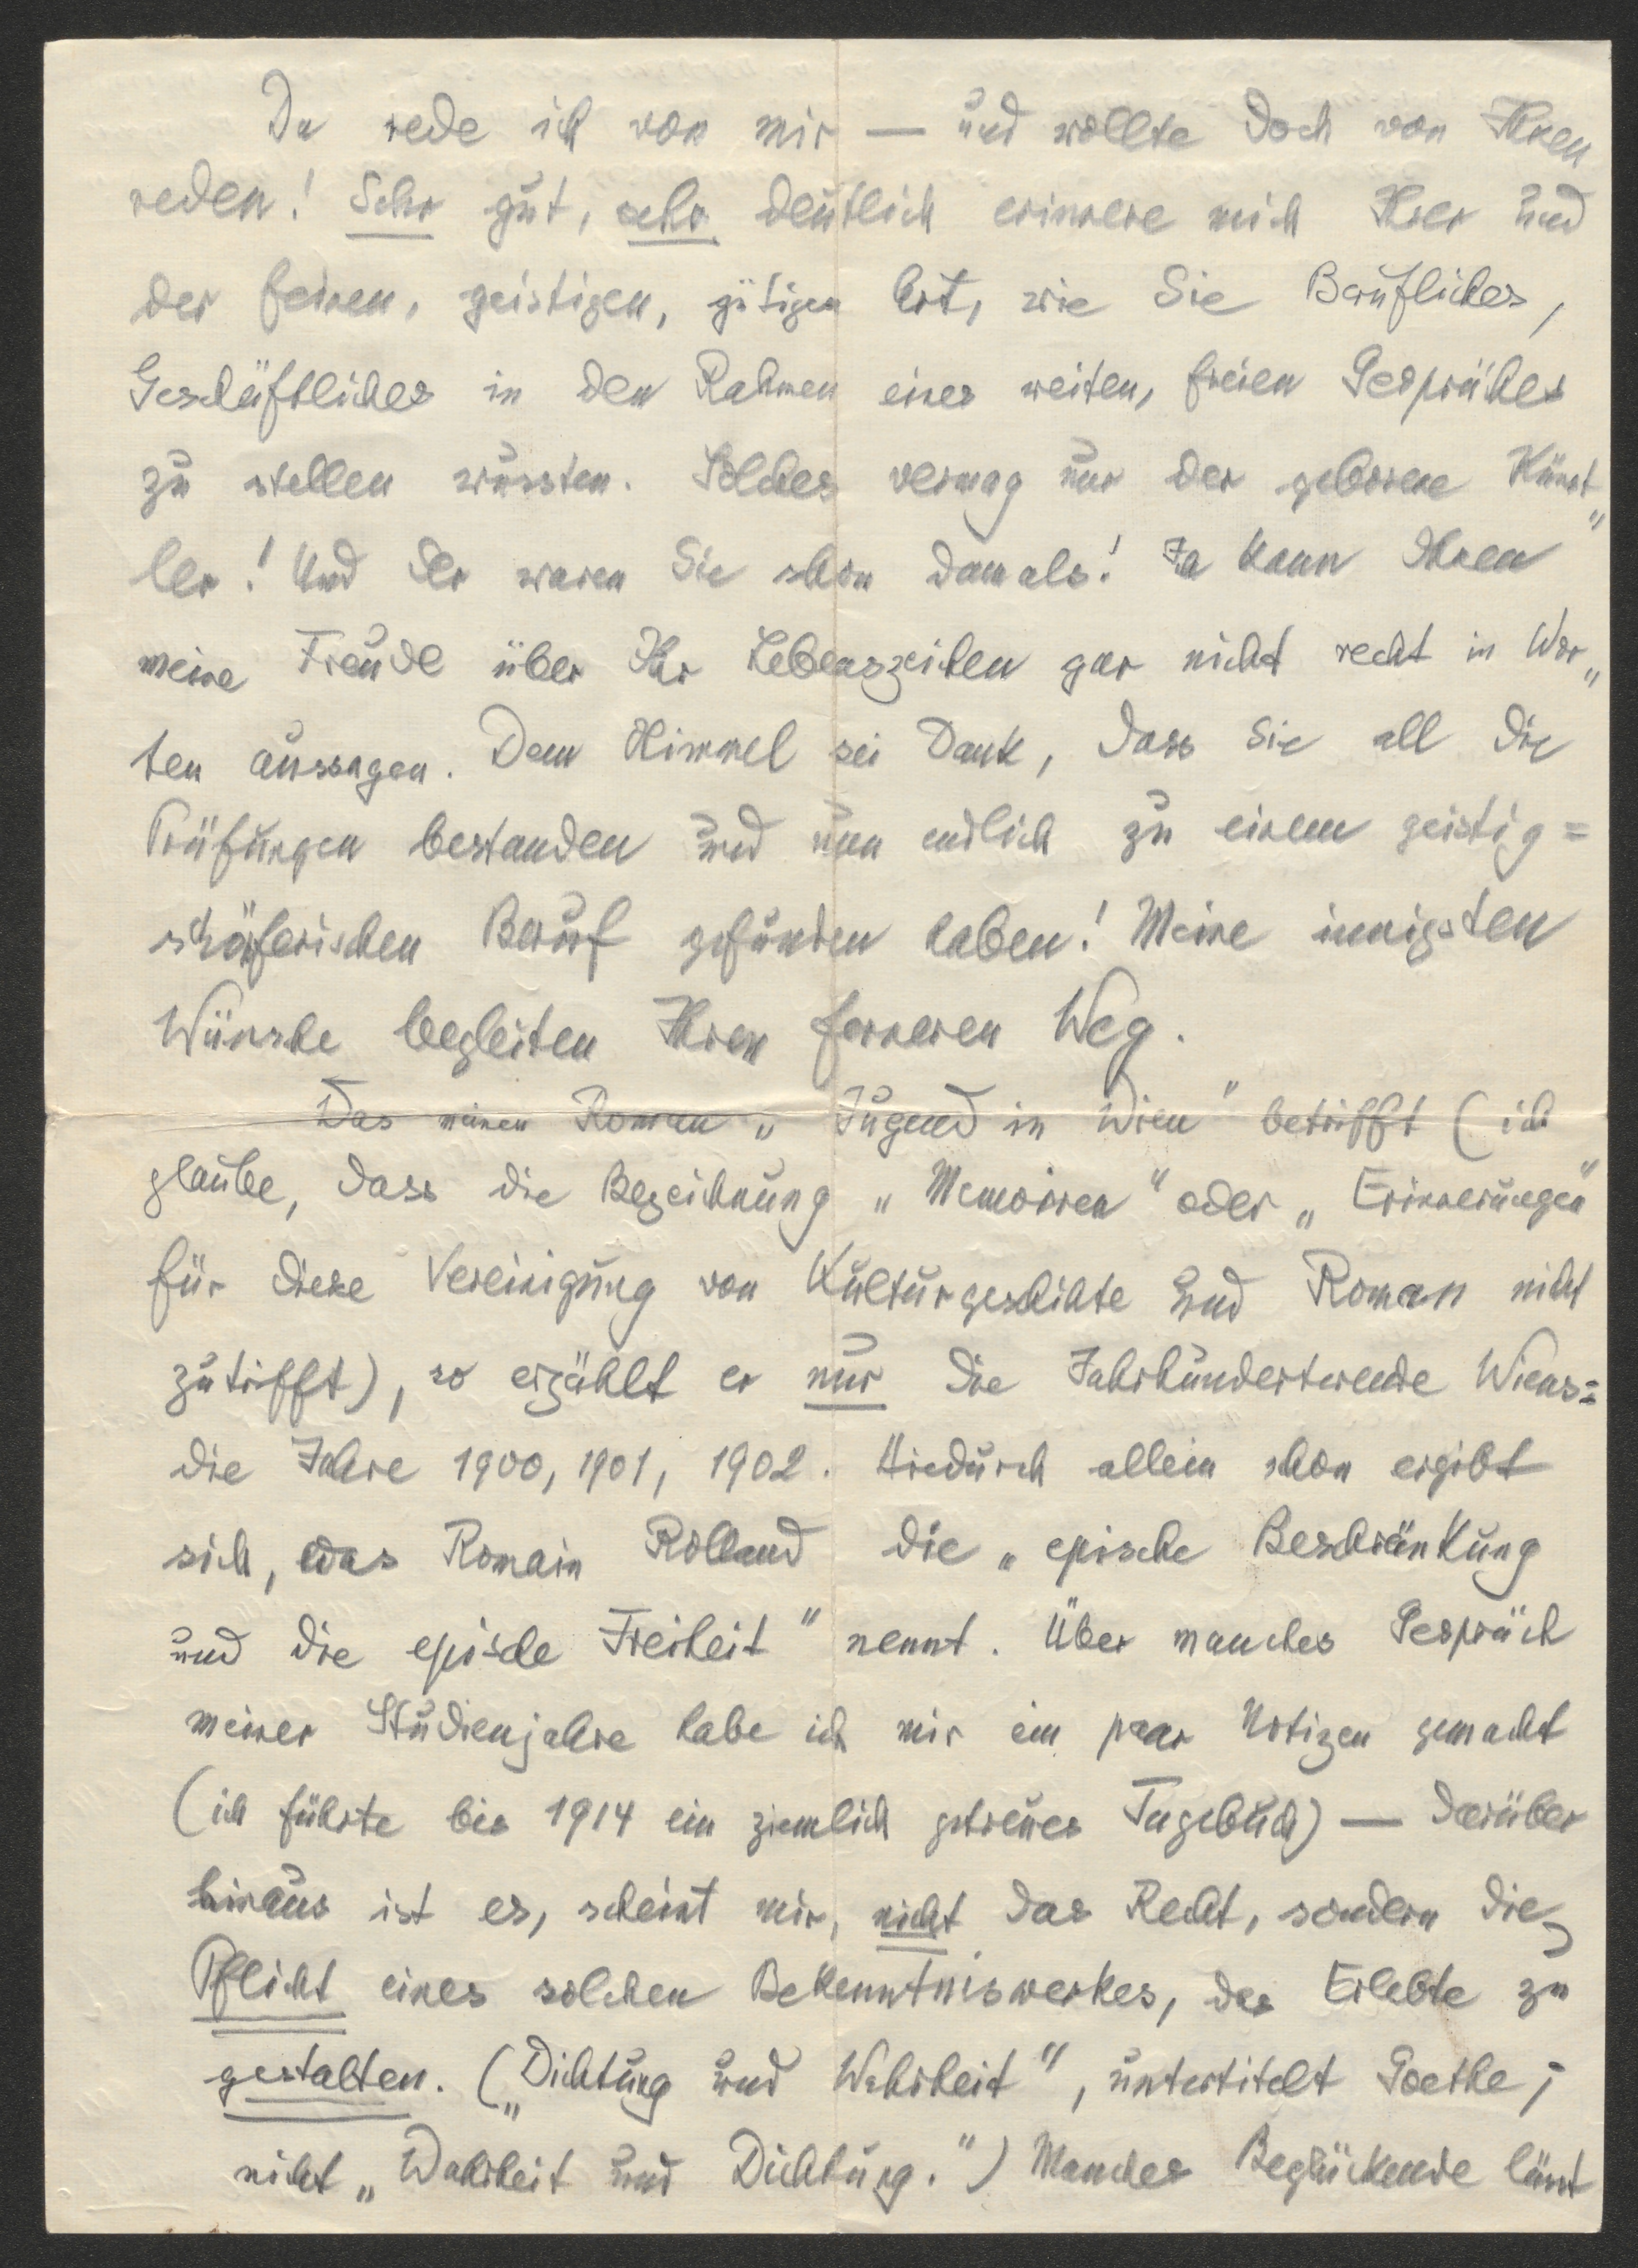 Da rede ich von mir — und wollte doch von Ihnen
reden! Sehr gut, sehr deutlich erinnere mich Ihrer und
der feinen, geistigen, gütigen Art, wie Sie Berufliches,
Geschäftliches in den Rahmen eines weiten, freien Gespräches
zu stellen wussten. Solches vermag nur der geborene Künst„
ler! Und der waren Sie schon damals! Ja kann Ihnen
meine Freude über Ihr Lebenszeichen gar nicht recht in Wor„
ten aussagen. Dem Himmel sei Dank, dass Sie all die
Prüfungen bestanden und nun endlich zu einem geistig=
schöpferischen Beruf gefunden haben! Meine innigsten
Wünsche begleiten Ihren ferneren Weg.
Was meinen Roman „Jugend in Wien" betrifft (ich
glaube, dass die Bezeichnung „Memoiren" oder „Erinnerungen"
für diese Vereinigung von Kulturgeschichte und Roman nicht
zutrifft), so erzählt er nur die Jahrhundertwende Wiens=
die Jahre 1900, 1901, 1902. Hiedurch allein schon ergibt
sich, was Romain Rolland die „epische Beschränkung
und die epische Freiheit" nennt. Über manches Gespräch
meiner Studienjahre habe ich mir ein paar Notizen gemacht
(ich führte bis 1914 ein ziemlich getreues Tagebuch) — darüber
hinaus ist es, scheint mir, nicht das Recht, sondern die
Pflicht eines solchen Bekenntniswerkes, das Erlebte zu
gestalten. („Dichtung und Wahrheit", untertitelt Goethe;
nicht „Wahrheit und Dichtung.") Manches Beglückende lässt